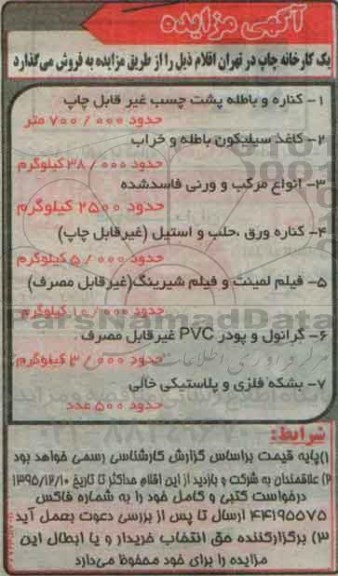 آگهی مزایده
یک کارخانه چاپ در تهران اقلام ذیل را از طریق مزایده به فروش می‌گذارد
۱- کناره و باطله پشت چسب غیر قابل چاپ
حدود ۷۰۰/۰۰۰ متر
۲- کاغذ سیلیکون باطله و خراب
حدود ۳۸/۰۰۰ کیلوگرم
۳- انواع مرکب و ورنی فاسدشده
حدود ۲۵۰۰ کیلوگرم
۴- کناره ورق ،حلب و استیل (غیرقابل چاپ)
حدود ۵/۰۰۰ کیلوگرم
۵- فیلم لمینت و فیلم شیرینگ(غیرقابل مصرف)
حدود ۱۰/۰۰۰ کیلوگرم
۶- گرانول و پودر PVC غیرقابل مصرف .
حدود ۳/۰۰۰ کیلوگرم
۷- بشکه فلزی و پلاستیکی خالی
حدود ۵۰۰ عدد
ParsNamadData
شرایط:
۱)پایه قیمت براساس گزارش کارشناسی رسمی خواهد بود
۲) علاقمندان به شرکت و بازدید از این اقلام حداکثر تا تاریخ ۱۳۹۵/۱۲/۱۰
درخواست کتبی و کامل خود را به شماره فاکس
۴۴۱۹۵۵۷۵ ارسال تا پس از بررسی دعوت بعمل آید
۳) برگزارکننده حق انتخاب خریدار و یا ابطال این
مزایده را برای خود محفوظ می‌دارد